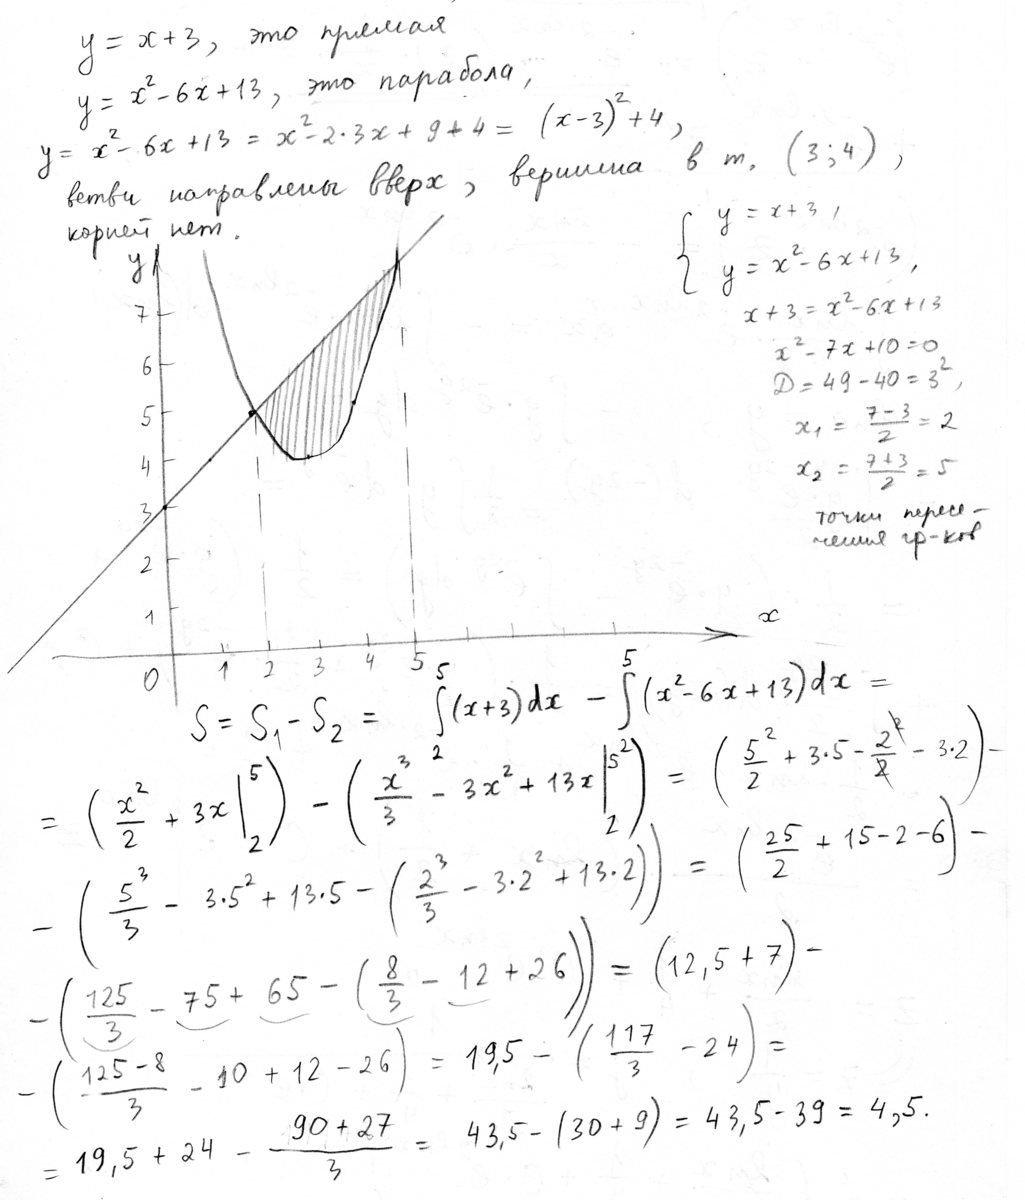 y = x+3, это прямая
y = x²-6x+13, это парабола,
y = x²-6x+13 = x²-2·3x+9+4 = (x-3)²+4,
ветви направлены вверх, вершина в т. (3;4),
корней нет.
{ y = x+3,
y = x²-6x+13,
x+3 = x²-6x+13
x²-7x+10=0
D = 49-40 = 3²,
x₁ = (7-3)/2 = 2
x₂ = (7+3)/2 = 5
точки пересе-
чения гр-ков
y
7
6
5
4
3
2
1
0 1 2 3 4 5
x
S = S₁-S₂ = ∫₂⁵(x+3)dx - ∫₂⁵(x²-6x+13)dx =
= (x²/2 + 3x|₂⁵) - (x³/3 - 3x² + 13x|₂⁵) = (5²/2 + 3·5 - 2²/2 - 3·2) -
- (5³/3 - 3·5² + 13·5 - (2³/3 - 3·2² + 13·2)) = (25/2 + 15-2-6) -
- (125/3 - 75 + 65 - (8/3 - 12 + 26)) = (12,5+7) -
- ((125-8)/3 - 10 + 12 - 26) = 19,5 - (117/3 - 24) =
= 19,5 + 24 - (90+27)/3 = 43,5 - (30+9) = 43,5-39 = 4,5.